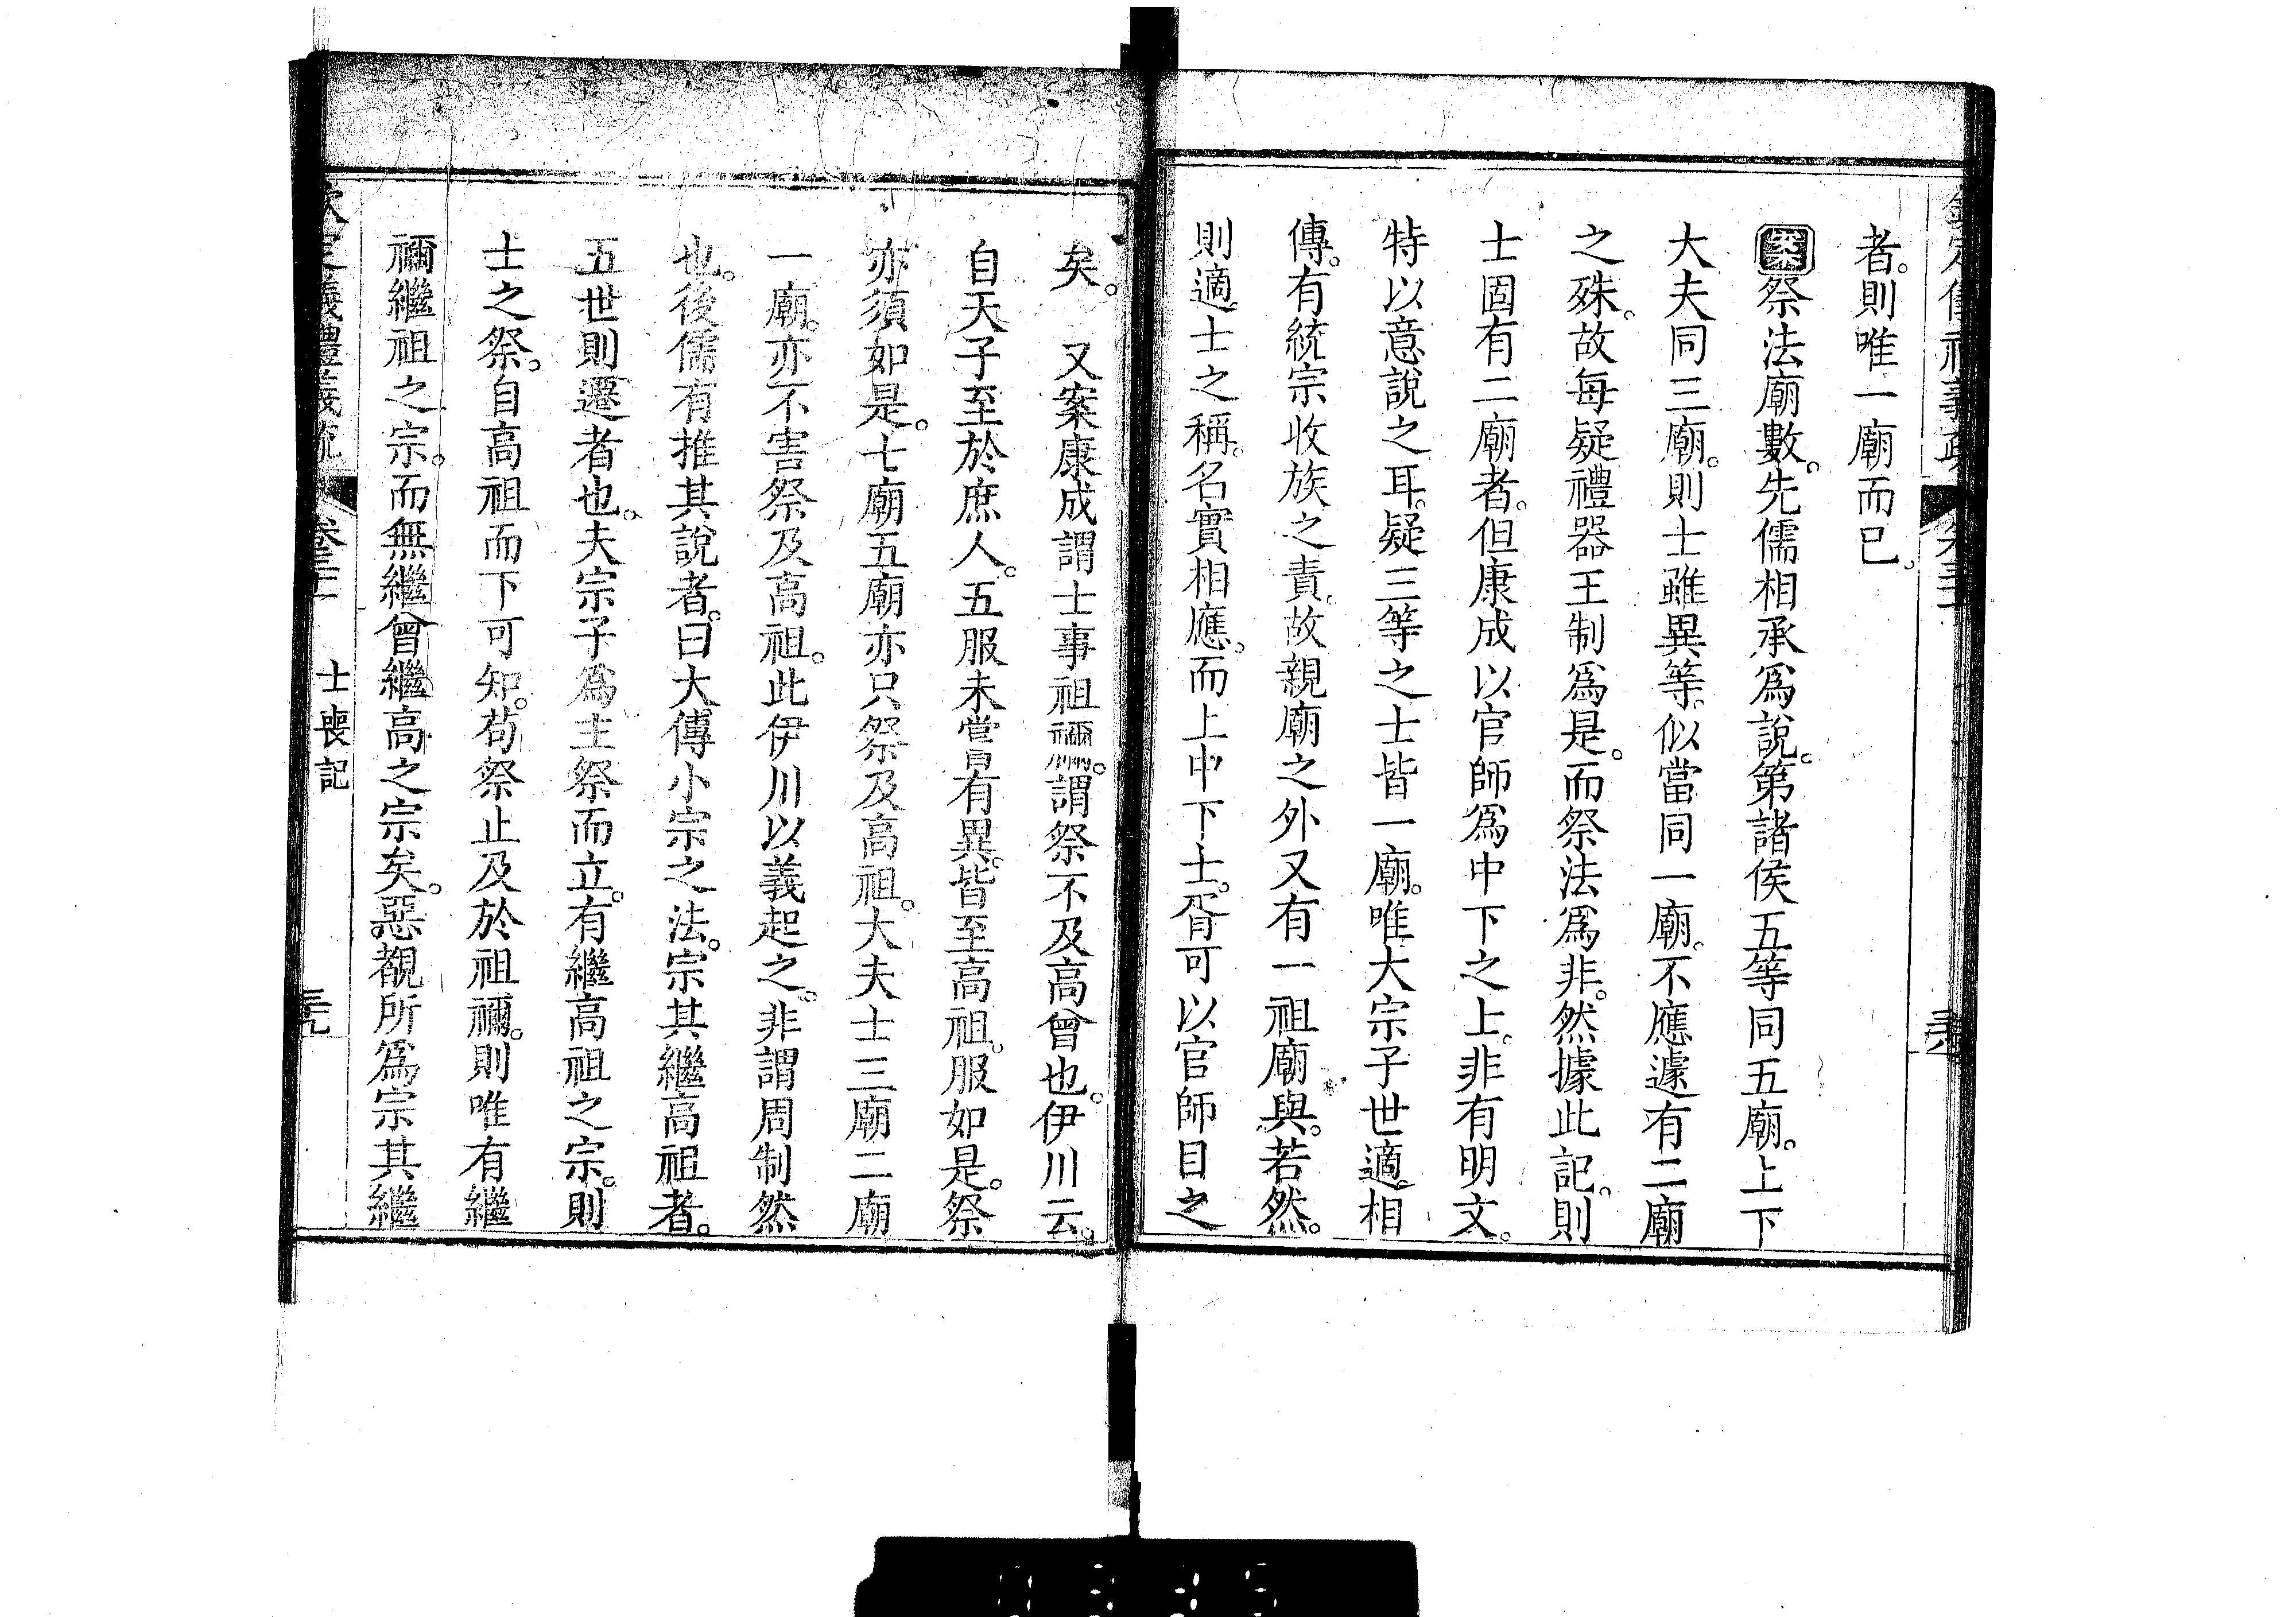 者。則唯一廟而已。
案祭法廟數。先儒相承爲說。第諸侯五等同五廟。上下
大夫同三廟。則士雖異等。似當同一廟。不應遽有二廟
之殊。故每疑禮器王制爲是。而祭法爲非。然據此記。則
士固有二廟者。但康成以官師爲中下之上。非有明文。
特以意說之耳。疑三等之士皆一廟。唯大宗子世適。相
傳。有統宗收族之責。故親廟之外又有一祖廟與。若然。
則適士之稱。名實相應。而上中下士。胥可以官師目之
矣。 又案康成謂士事祖禰。謂祭不及高曾也。伊川云。
自天子至於庶人。五服未嘗有異。皆至高祖。服如是。祭
亦須如是。七廟五廟亦只祭及高祖。大夫士三廟二廟
一廟。亦不害祭及高祖。此伊川以義起之。非謂周制然
也。後儒有推其說者。曰大傳小宗之法。宗其繼高祖者。
五世則遷者也。夫宗子爲主祭而立。有繼高祖之宗。則
士之祭。自高祖而下可知。苟祭止及於祖禰。則唯有繼
禰繼祖之宗。而無繼曾繼高之宗矣。惡覩所爲宗其繼
士喪記